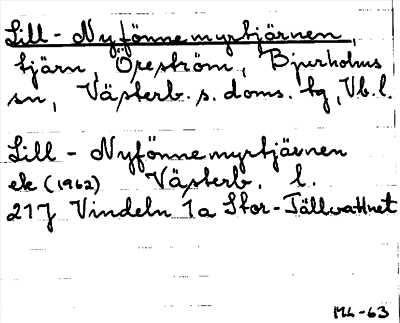 Lill-Nyfönnemyrtjärnen,
tjärn, Öreström, Bjurholms
sn, Västerb. s. doms. tg, Vb. l.
Lill-Nyfönnemyrtjärnen
ek (1962) Västerb. l.
21J Vindeln 1a Stor-Tällvattnet
ML-63